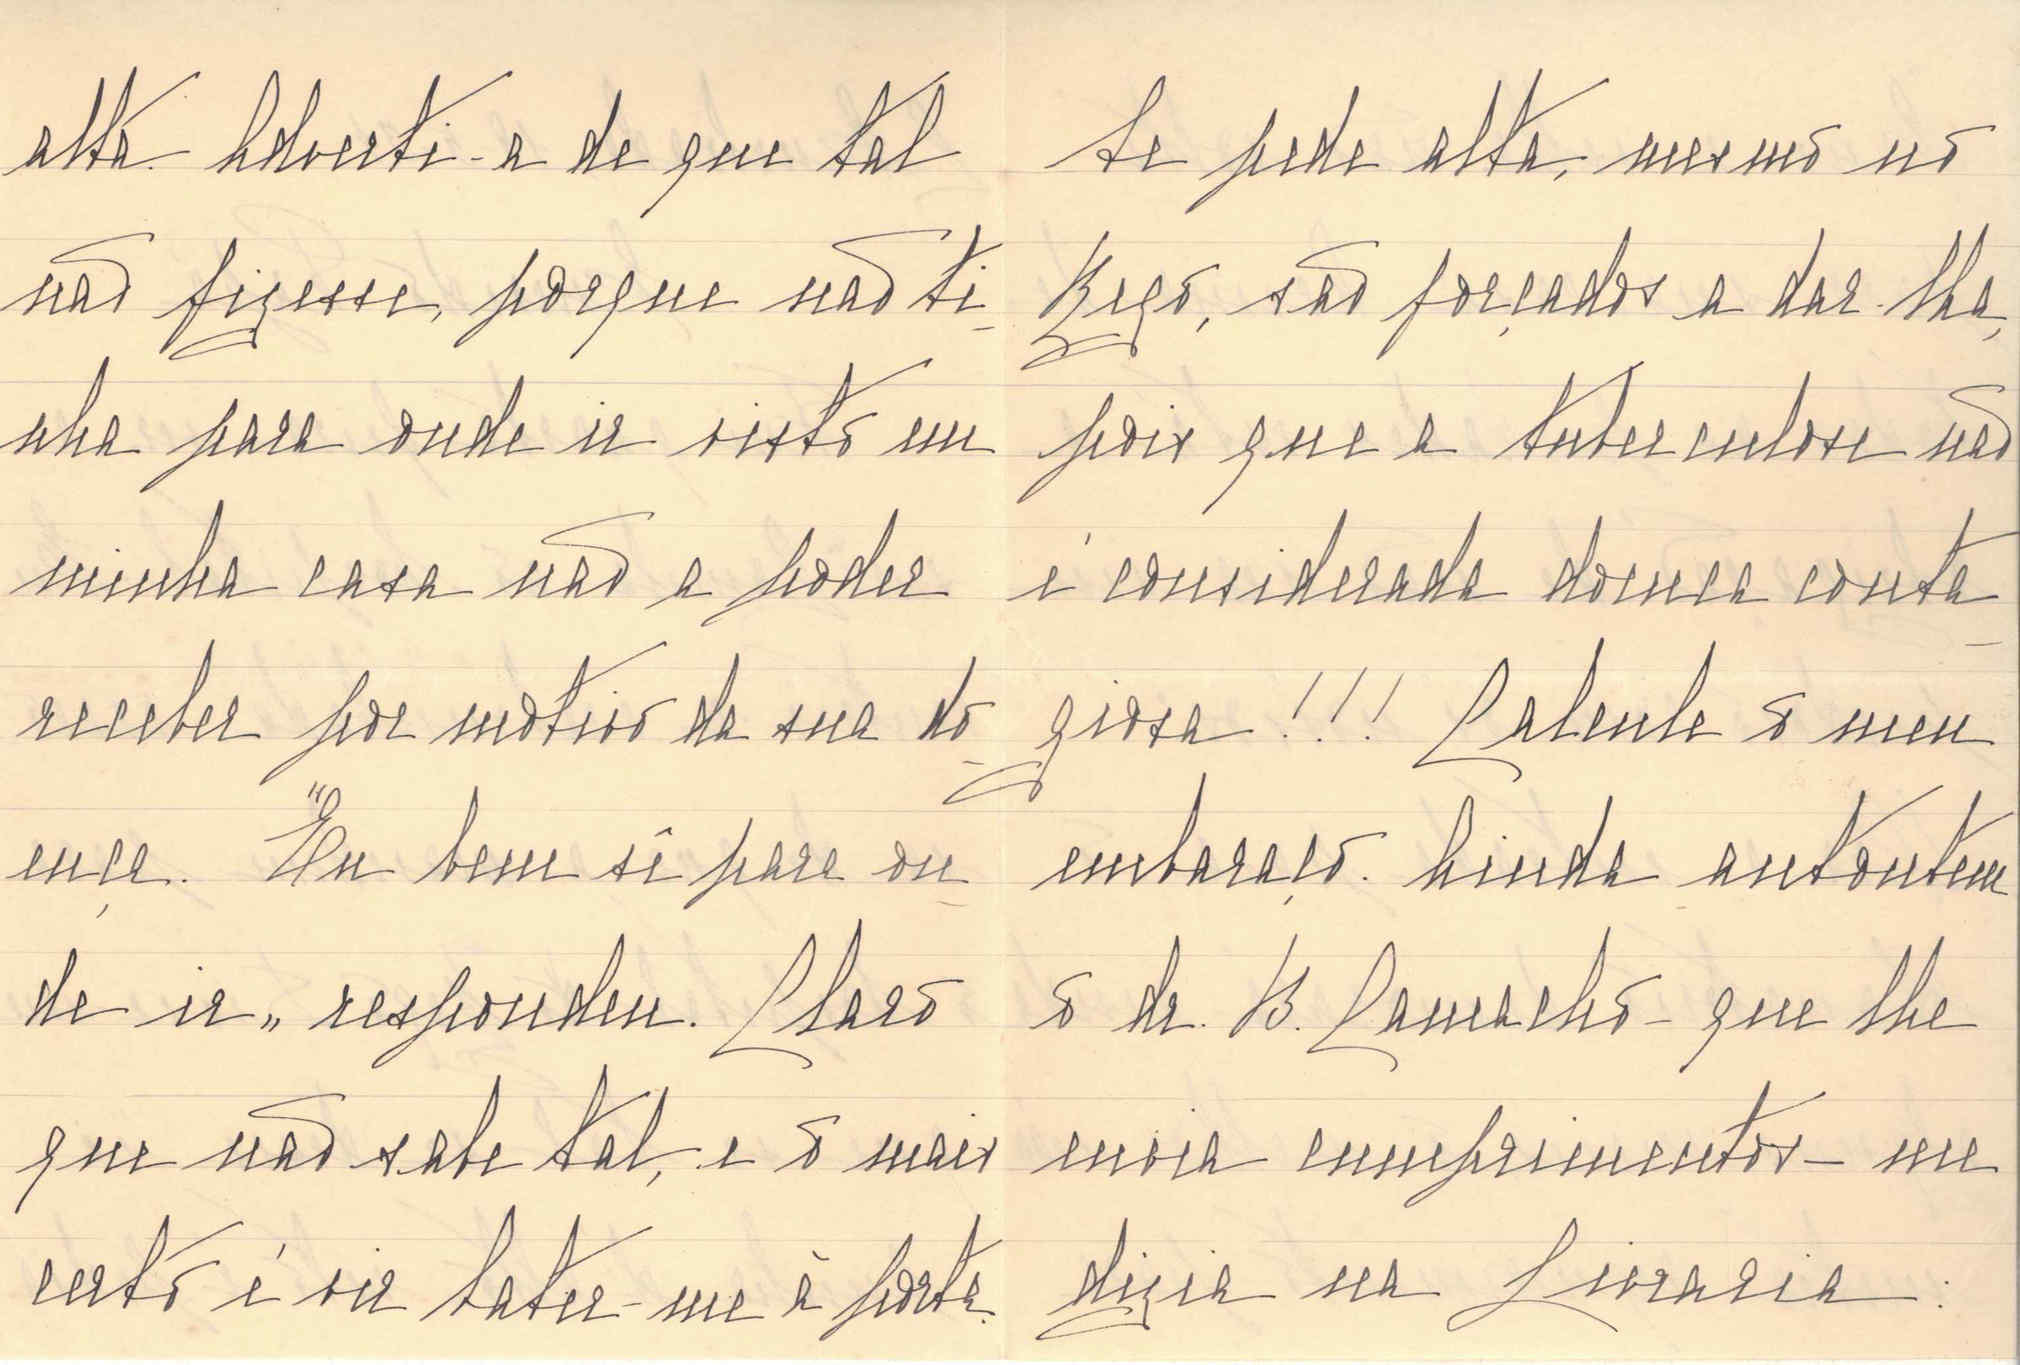 alta. Adverti-a de que tal
não fizesse, porque não ti-
nha para onde ir visto em
minha casa não a poder
receber por motivo da sua do-
ença. "Eu bem sê para on-
de ir" respondeu. Claro
que não sabe tal, e o mais
certo é vir bater-me à porta.
Se pede alta, mesmo no
Rego, são forçados a dar-lha,
pois que a tuberculose não
é considerada doenca conta-
giosa!!! Calcule o meu
embaraço. Ainda antontem
o dr. B. Camacho - que lhe
envia cumprimentos - me
dizia na Livraria: